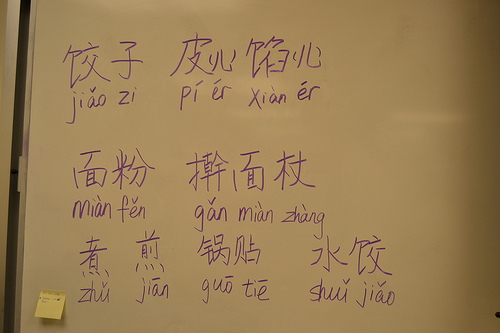 饺子 皮儿 馅儿
jiǎo zi pí ér xiàn ér
面粉 擀面杖
miàn fěn gǎn miàn zhàng
煮 煎 锅贴 水饺
zhǔ jiān guō tiē shuǐ jiǎo